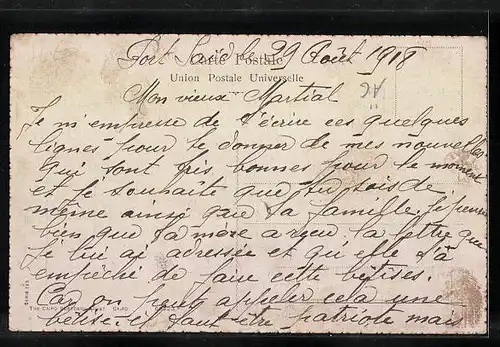 Port Saïd le 29 Août 1918
Carte Postale
Union Postale Universelle
AG
Mon vieux Martial
Je m'empresse de t'écrire ces quelques
lignes pour te donner de mes nouvelles
qui sont très bonnes pour le moment
et je souhaite que tu sois de
même ainsi que ta famille. Je pense
bien que ta mère a reçu la lettre que
je lui ai adressée et qu'elle t'a
empêché de faire cette bêtises.
Car on peut appeler cela une
THE CAIRO POSTCARD TRUST CAIRO
bêtise. il faut être patriote mais